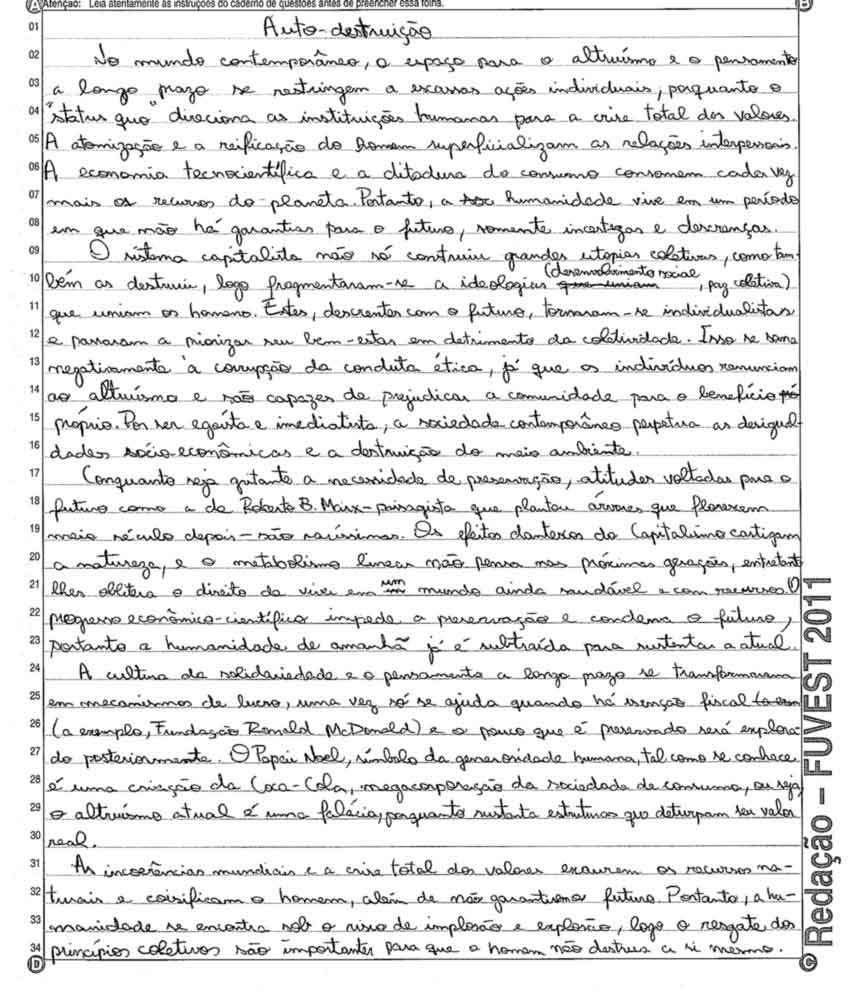 Atenção: Leia atentamente as instruções do caderno de questões antes de preencher essa folha.
A B
01 Auto-destruição
02 No mundo contemporâneo, o espaço para o altruísmo e o pensamento
03 a longo prazo se restringem a escassas ações individuais, porquanto o
04 "status quo" direciona as instituições humanas para a crise total dos valores.
05 A atomização e a reificação do homem superficializam as relações interpessoais.
06 A economia tecnocientífica e a ditadura do consumo consomem cada vez
07 mais os recursos do planeta. Portanto, a humanidade vive em um período
08 em que não há garantias para o futuro, somente incertezas e descrenças.
09 O sistema capitalista não só construiu grandes utopias coletivas, como tam-
10 bém as destruiu, logo fragmentaram-se as ideologias (desenvolvimento social, paz coletiva)
11 que uniam os homens. Estes, descrentes com o futuro, tornaram-se individualistas
12 e passaram a priorizar seu bem-estar em detrimento da coletividade. Isso se soma
13 negativamente à corrupção da conduta ética, já que os indivíduos renunciam
14 ao altruísmo e são capazes de prejudicar a comunidade para o benefício
15 próprio. Por ser egoísta e imediatista, a sociedade contemporânea perpetua as desigual-
16 dades sócio-econômicas e a destruição do meio ambiente.
17 Conquanto seja gritante a necessidade de preservação, atitudes voltadas para o
18 futuro como a de Roberto B. Marx - paisagista que plantou árvores que florescem
19 meio século depois - são raríssimas. Os efeitos dantescos do Capitalismo castigam
20 a natureza, e o metabolismo linear não pensa nas próximas gerações, entretanto
21 lhes oblitera o direito de viver em um mundo ainda saudável e com recursos. O
22 progresso econômico-científico impede a preservação e condena o futuro,
23 portanto a humanidade de amanhã já é subtraída para sustentar a atual.
24 A cultura da solidariedade e o pensamento a longo prazo se transformaram
25 em mecanismos de lucro, uma vez só se ajuda quando há isenção fiscal
26 (a exemplo, Fundação Ronald McDonald) e o pouco que é preservado será explora-
27 do posteriormente. O Papai Noel, símbolo da generosidade humana, tal como se conhece
28 é uma criação da Coca-Cola, megacorporação da sociedade de consumo, ou seja,
29 o altruísmo atual é uma falácia, porquanto sustenta estruturas que deturpam seu valor
30 real.
31 As incoerências mundiais e a crise total dos valores exaurem os recursos na-
32 turais e coisificam o homem, além de não garantirem o futuro. Portanto, a hu-
33 manidade se encontra sob o risco de implosão e explosão, logo o resgate dos
34 princípios coletivos são importantes para que o homem não destrua a si mesmo.
D C
Redação – FUVEST 2011